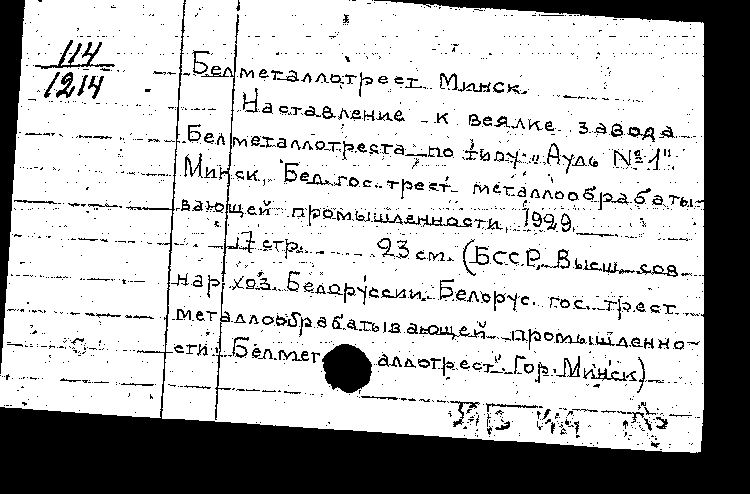 114
1214
Белметаллотрест Минск.
Наставление к веялке завода
Белметаллотреста по типу „Ауль №1".
Минск, Бел. гос. трест металлообрабаты-
вающей промышленности, 1929.
17 стр. 23 см. (БССР, Высш. сов.
нар. хоз. Белоруссии. Белорус. гос. трест
металлообрабатывающей промышленно-
сти „Белметаллотрест". Гор. Минск)